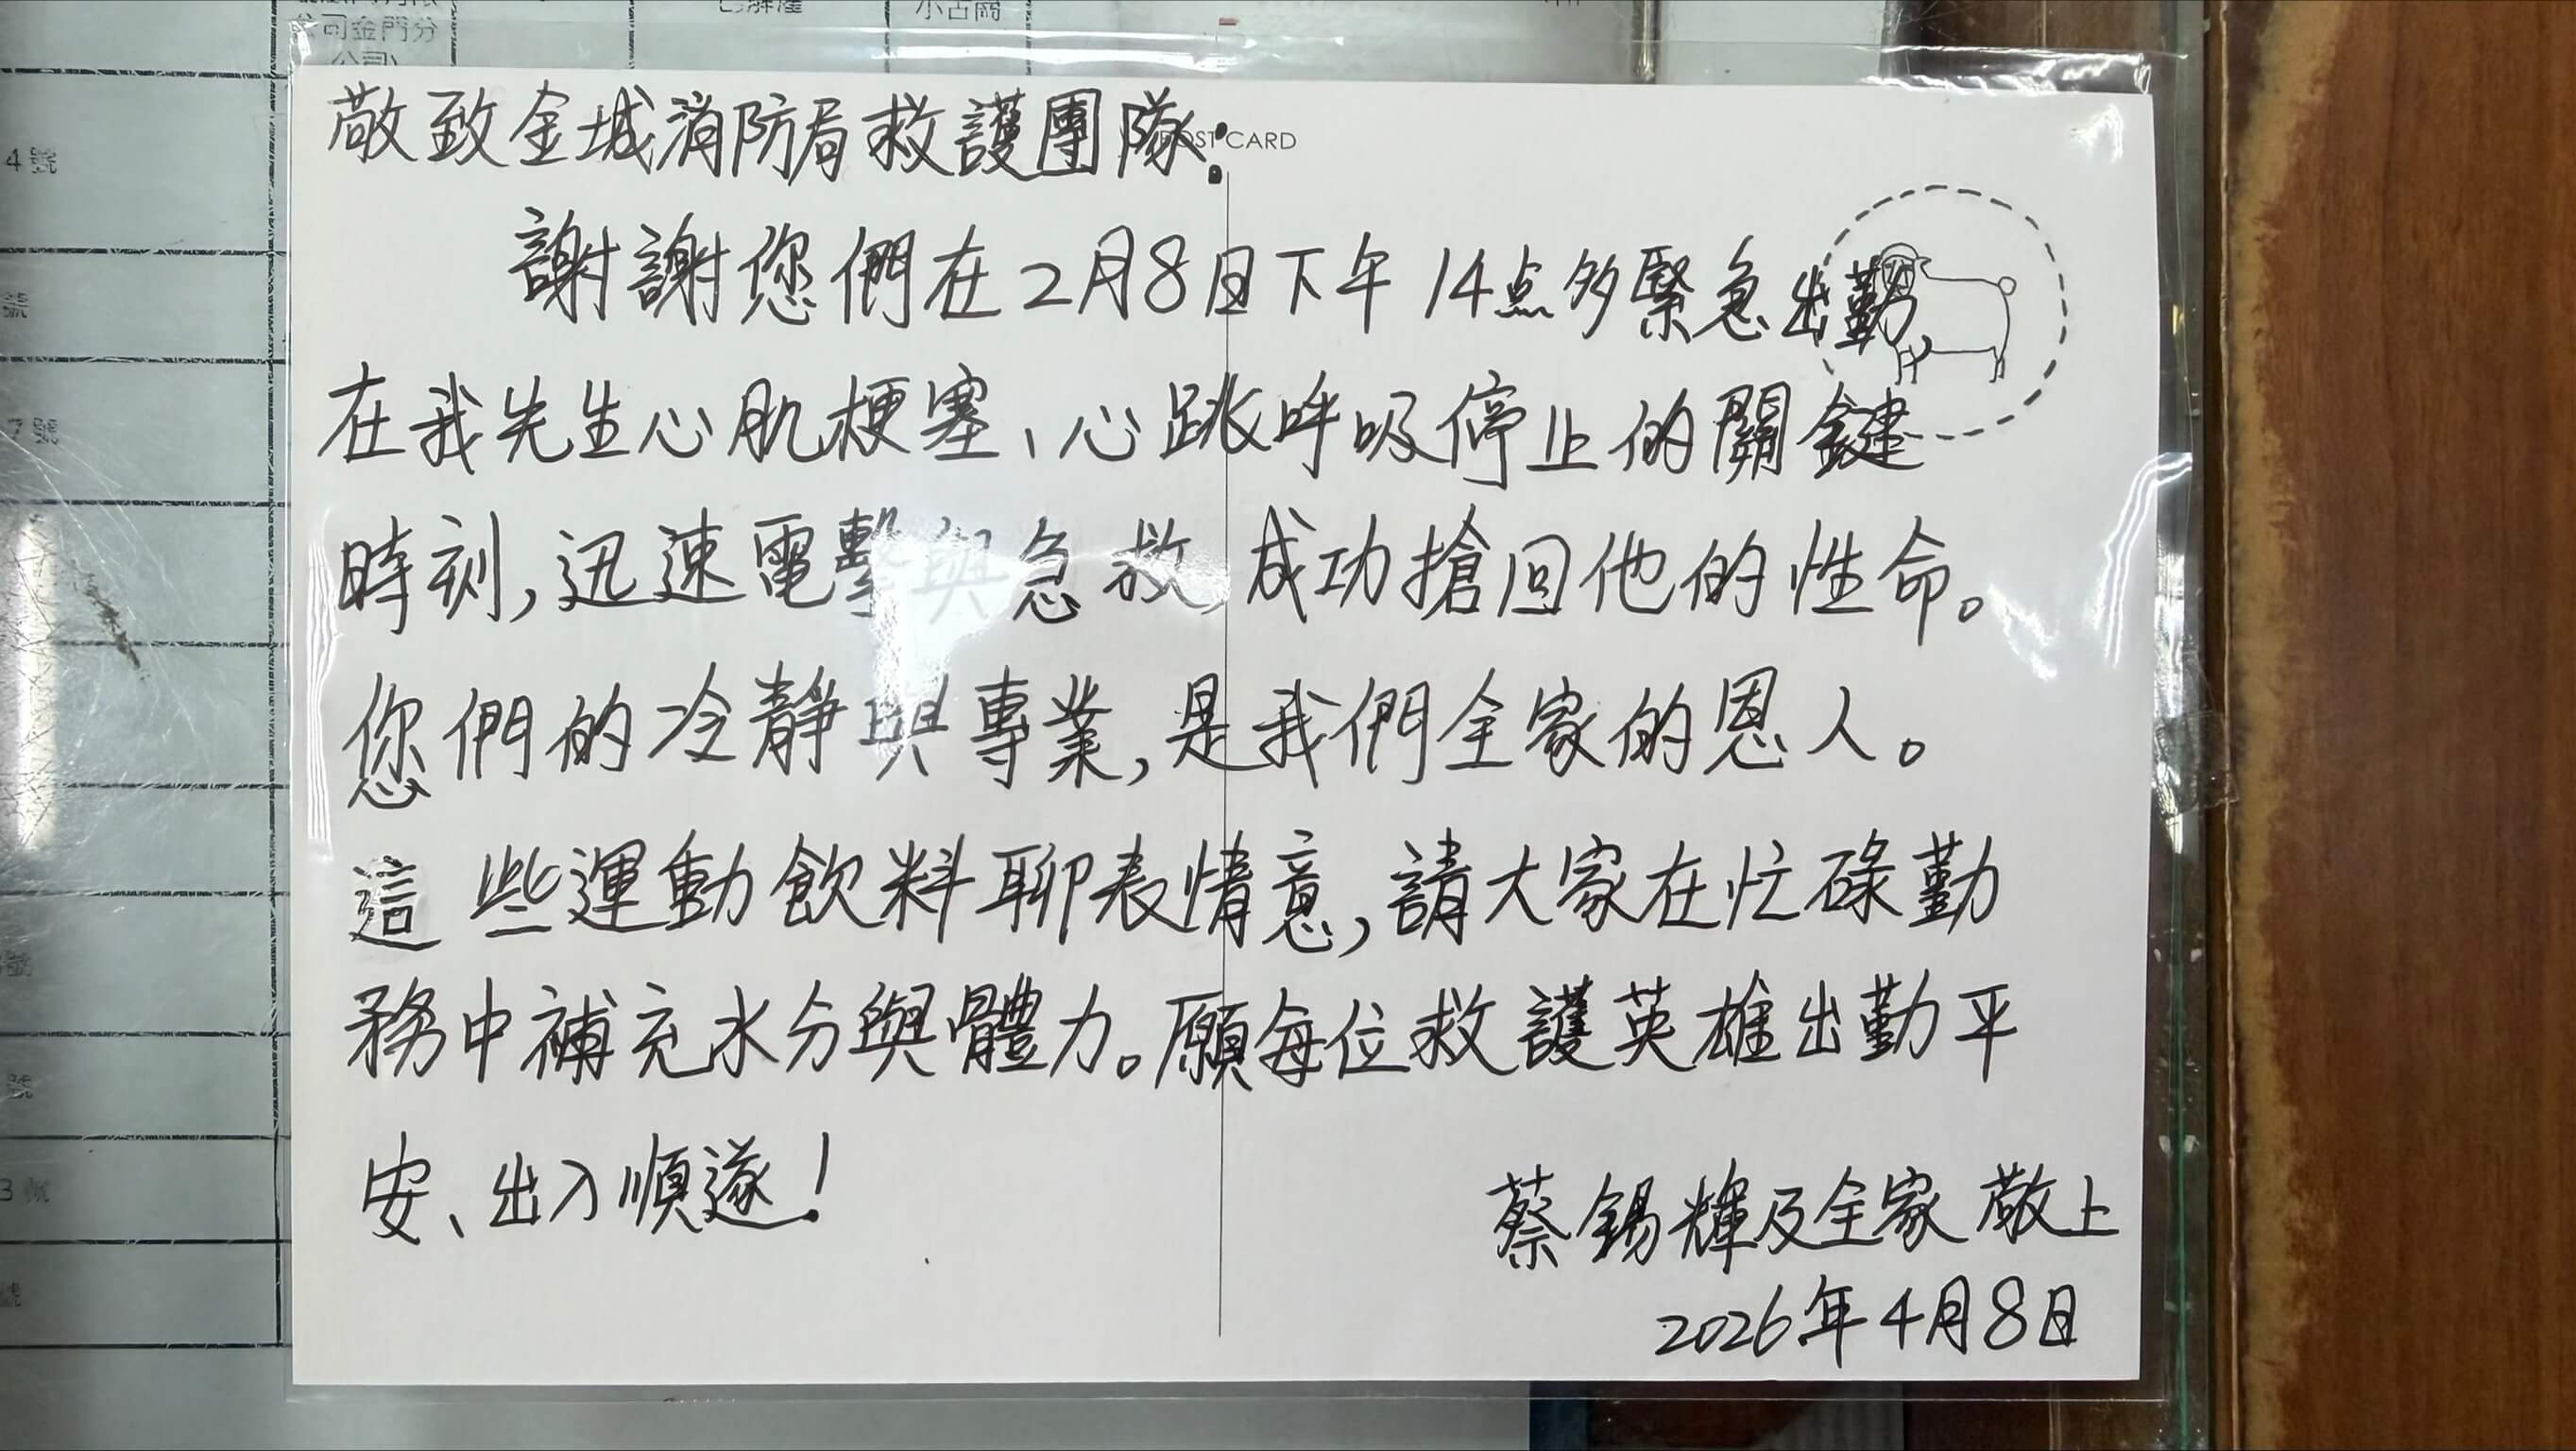 公司金門分
公司)
小古崗
4號
號
7號
號
POST CARD
敬致金城消防局救護團隊:
謝謝您們在2月8日下午14点多緊急出勤,
在我先生心肌梗塞、心跳呼吸停止的關鍵
時刻,迅速電擊與急救,成功搶回他的性命。
您們的冷靜與專業,是我們全家的恩人。
這些運動飲料聊表情意,請大家在忙碌勤
務中補充水分與體力。願每位救護英雄出勤平
安、出入順遂!
蔡錫輝及全家 敬上
2026年4月8日